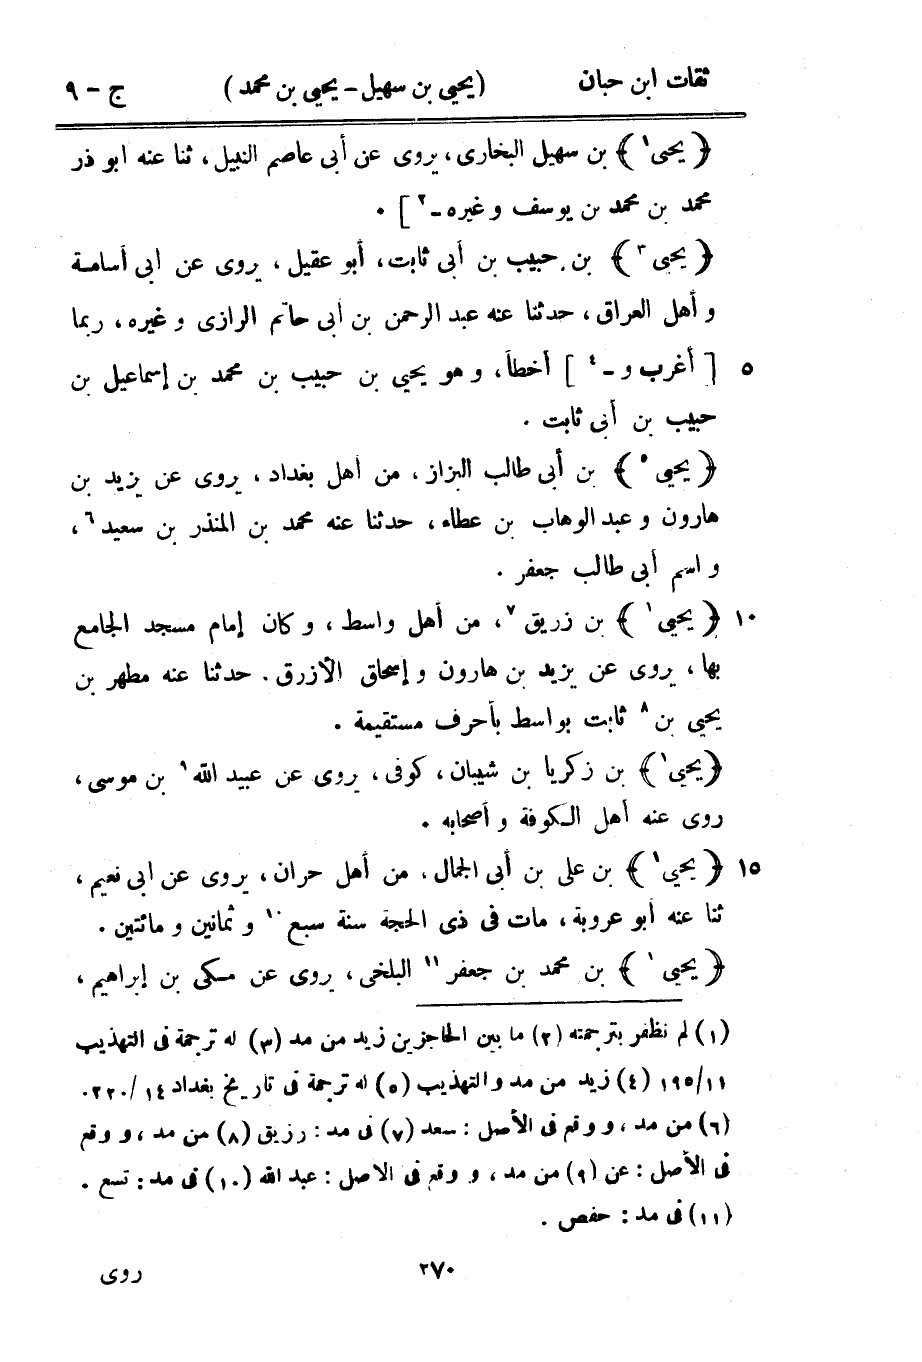 ثقات ابن حبان (يحيى بن سهيل - يحيى بن محمد) ج - ٩
﴿ يحيى ١ ﴾ بن سهيل البخارى، يروى عن أبى عاصم النبيل، ثنا عنه ابو ذر
محمد بن محمد بن يوسف و غيره - ٢ ] .
﴿ يحيى ٣ ﴾ بن حبيب بن أبى ثابت، أبو عقيل، يروى عن ابى أسامة
و أهل العراق، حدثنا عنه عبد الرحمن بن أبى حاتم الرازى و غيره، ربما
٥ [ أغرب و - ٤ ] أخطأ، و هو يحيى بن حبيب بن محمد بن إسماعيل بن
حبيب بن أبى ثابت .
﴿ يحيى ٥ ﴾ بن أبى طالب البزاز، من أهل بغداد، يروى عن يزيد بن
هارون و عبد الوهاب بن عطاء، حدثنا عنه محمد بن المنذر بن سعيد ٦،
و اسم أبى طالب جعفر .
١٠ ﴿ يحيى ١ ﴾ بن زريق ٧، من أهل واسط، و كان إمام مسجد الجامع
بها، يروى عن يزيد بن هارون و إسحاق الأزرق. حدثنا عنه مطهر بن
يحيى بن ٨ ثابت بواسط بأحرف مستقيمة .
﴿ يحيى ١ ﴾ بن زكريا بن شيبان، كوفى، يروى عن عبيد الله ٩ بن موسى،
روى عنه أهل الكوفة و أصحابه .
١٥ ﴿ يحيى ١ ﴾ بن على بن أبى الجمال، من أهل حران، يروى عن ابى نعيم،
ثنا عنه أبو عروبة، مات فى ذى الحجة سنة سبع ١٠ و ثمانين و مائتين .
﴿ يحيى ١ ﴾ بن محمد بن جعفر ١١ البلخى، يروى عن مكى بن إبراهيم،
(١) لم نظفر بترجمته (٢) ما بين الحاجزين زيد من مد (٣) له ترجمة فى التهذيب
١١/ ١٩٥ (٤) زيد من مد والتهذيب (٥) له ترجمة فى تاريخ بغداد ١٤/ ٢٢٠.
(٦) من مد، و وقع فى الأصل : سعد (٧) فى مد : رزيق (٨) من مد، و وقع
فى الأصل : عن (٩) من مد، و وقع فى الاصل : عبد الله (١٠) فى مد : تسع .
(١١) فى مد : حفص .
٢٧٠ روى